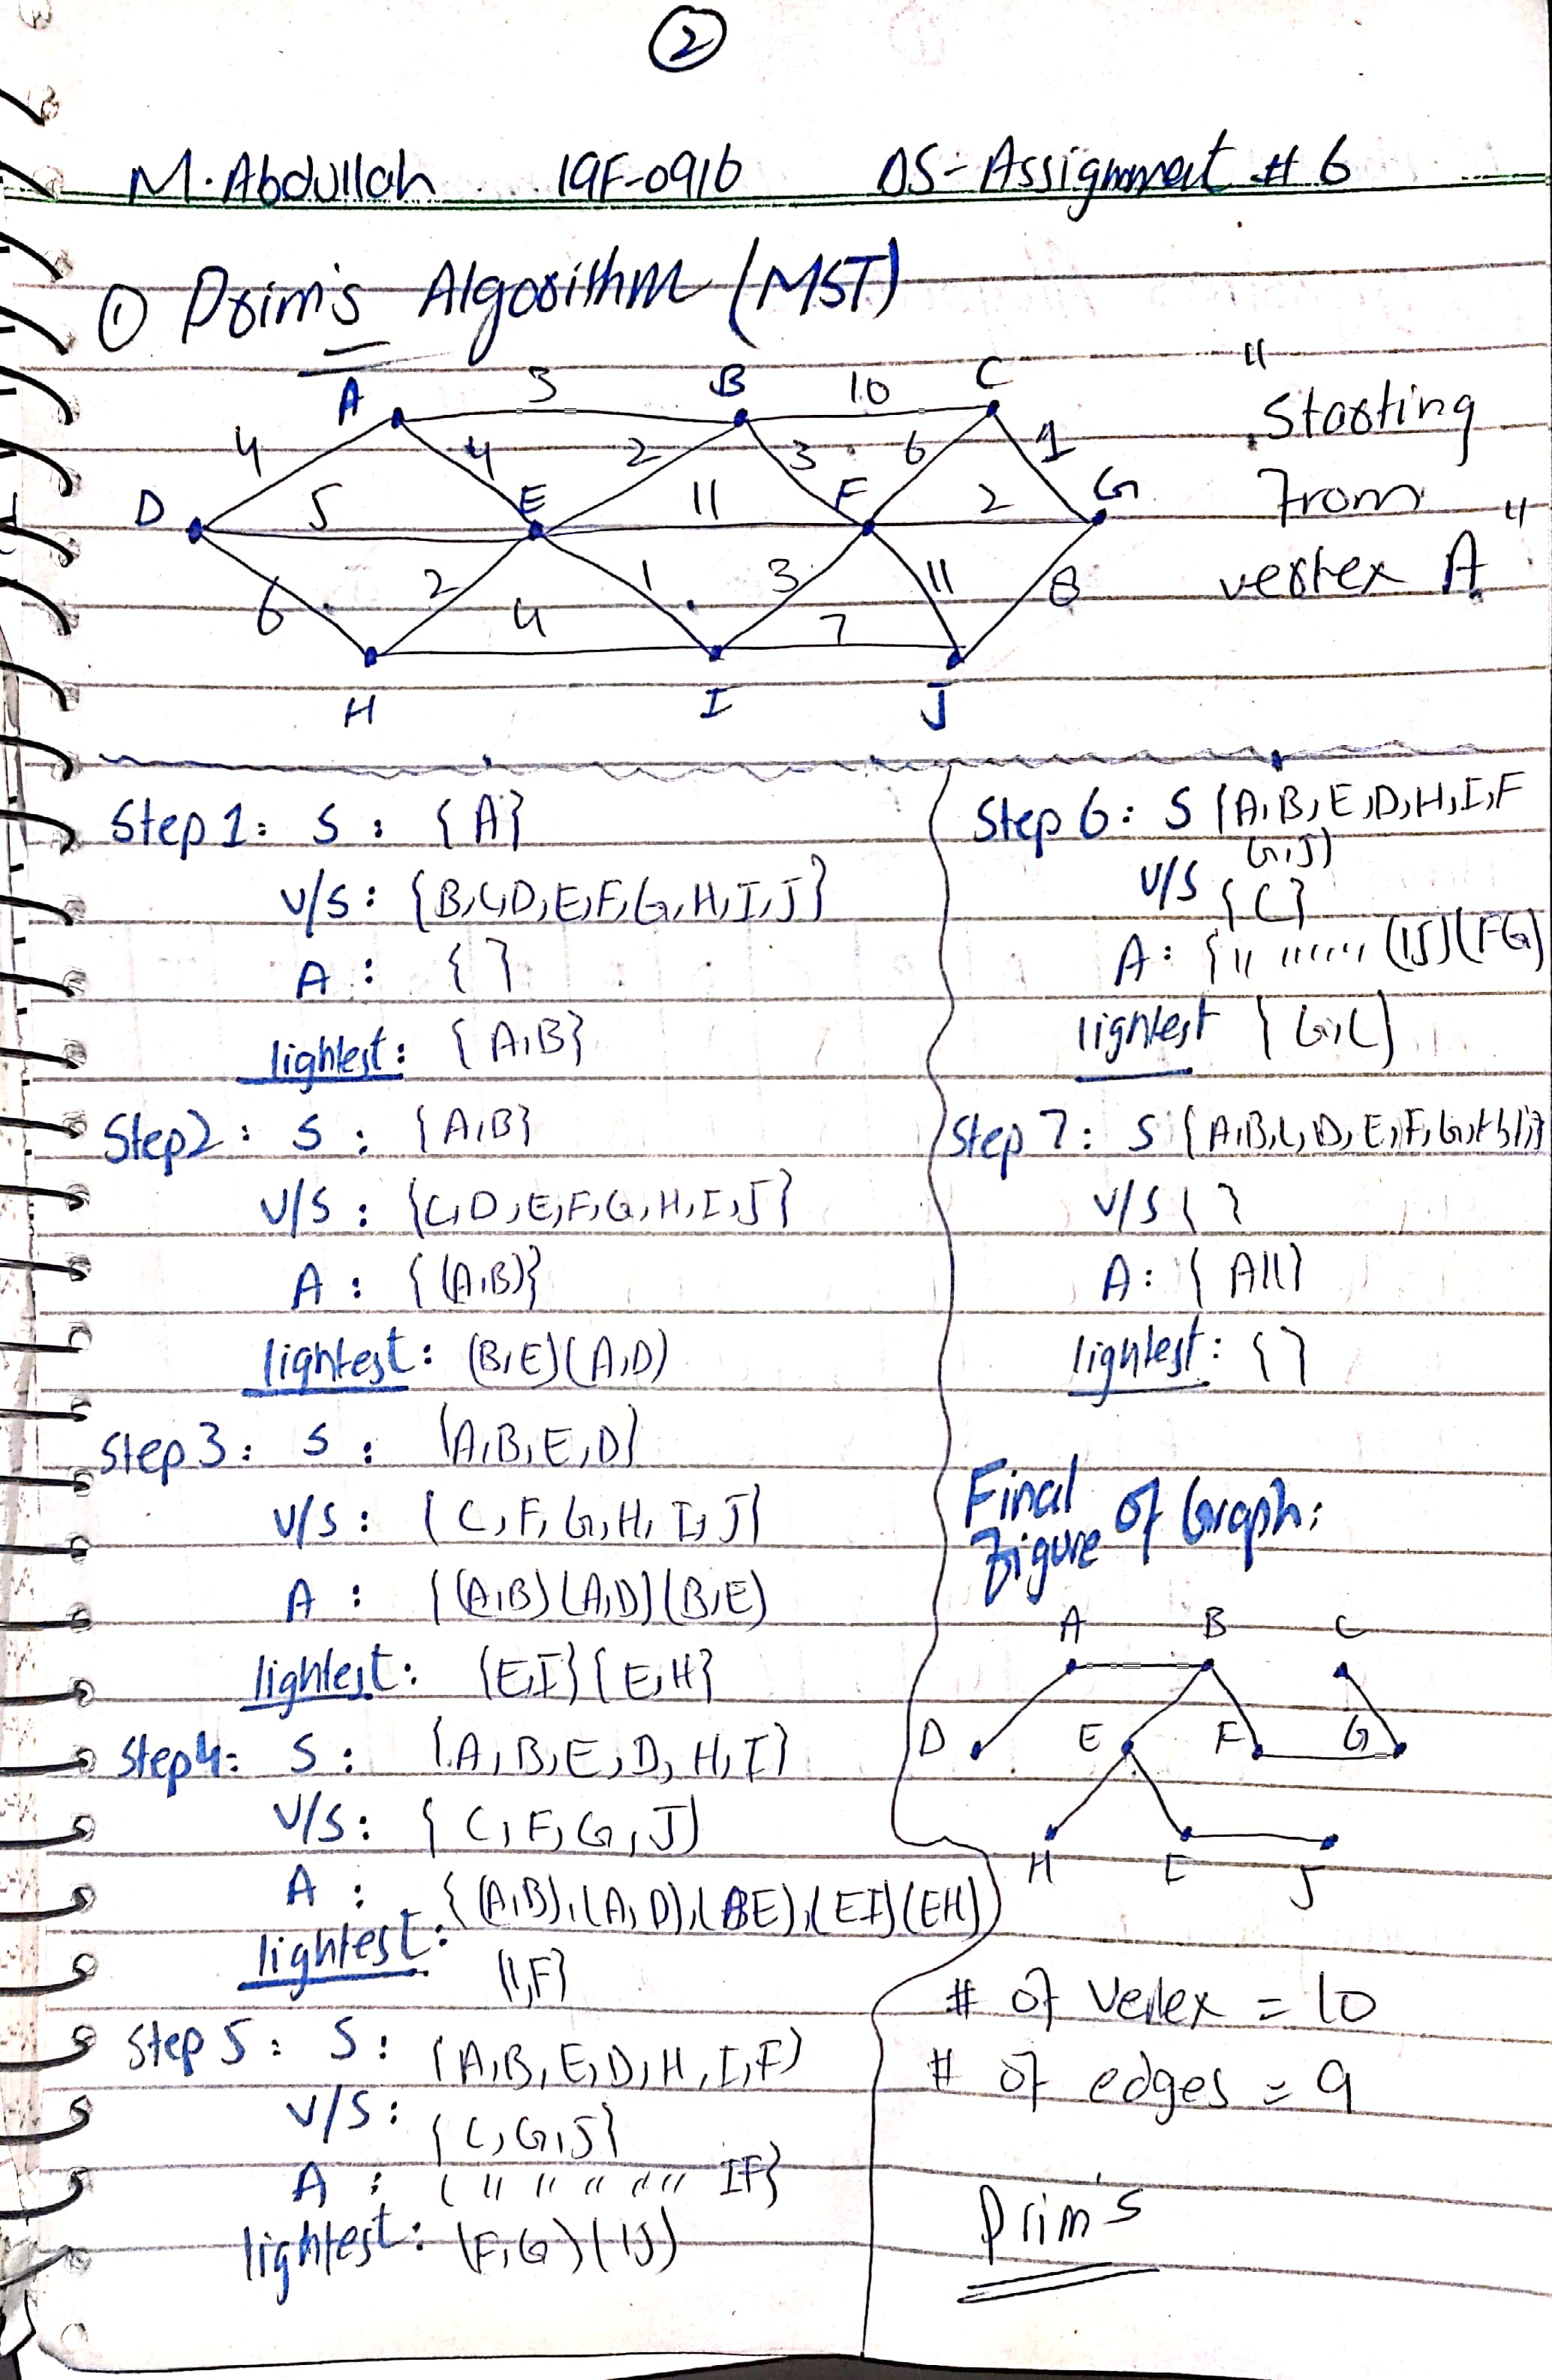 2
M.Abdullah 19F-0916 DS-Assignment # 6
① Prim's Algorithm (MST)
A 3 B 10 C
4 4 2 3 6 1
D 5 E 11 F 2 G
6 2 4 1 3 7 11 8
H I J
"Starting
from
vertex A"
Step 1: S : {A}
V/S : {B,C,D,E,F,G,H,I,J}
A : { }
lightest: {A,B}
Step2: S : {A,B}
V/S : {C,D,E,F,G,H,I,J}
A : {(A,B)}
lightest: (B,E)(A,D)
Step 3: S : {A,B,E,D}
V/S : {C,F,G,H,I,J}
A : {(A,B)(A,D)(B,E)
lightest: {E,I}{E,H}
Step4: S : {A,B,E,D,H,I}
V/S: {C,F,G,J}
A : {(A,B),(A,D),(BE),(EI)(EH)}
lightest: (I,F}
Step 5: S: {A,B,E,D,H,I,F}
V/S: {C,G,J}
A : { " " " " " IF}
lightest: (F,G)(IJ)
Step 6: S {A,B,E,D,H,I,F
G,J}
V/S {C}
A: {" """ (IJ)(FG)
lightest {G,C}
Step 7: S {A,B,C,D,E,F,G,H,I,J}
V/S { }
A: {All}
lightest: { }
Final
figure of Graph:
A B C
D E F G
H I J
# of vertex = 10
# of edges = 9
Prim's